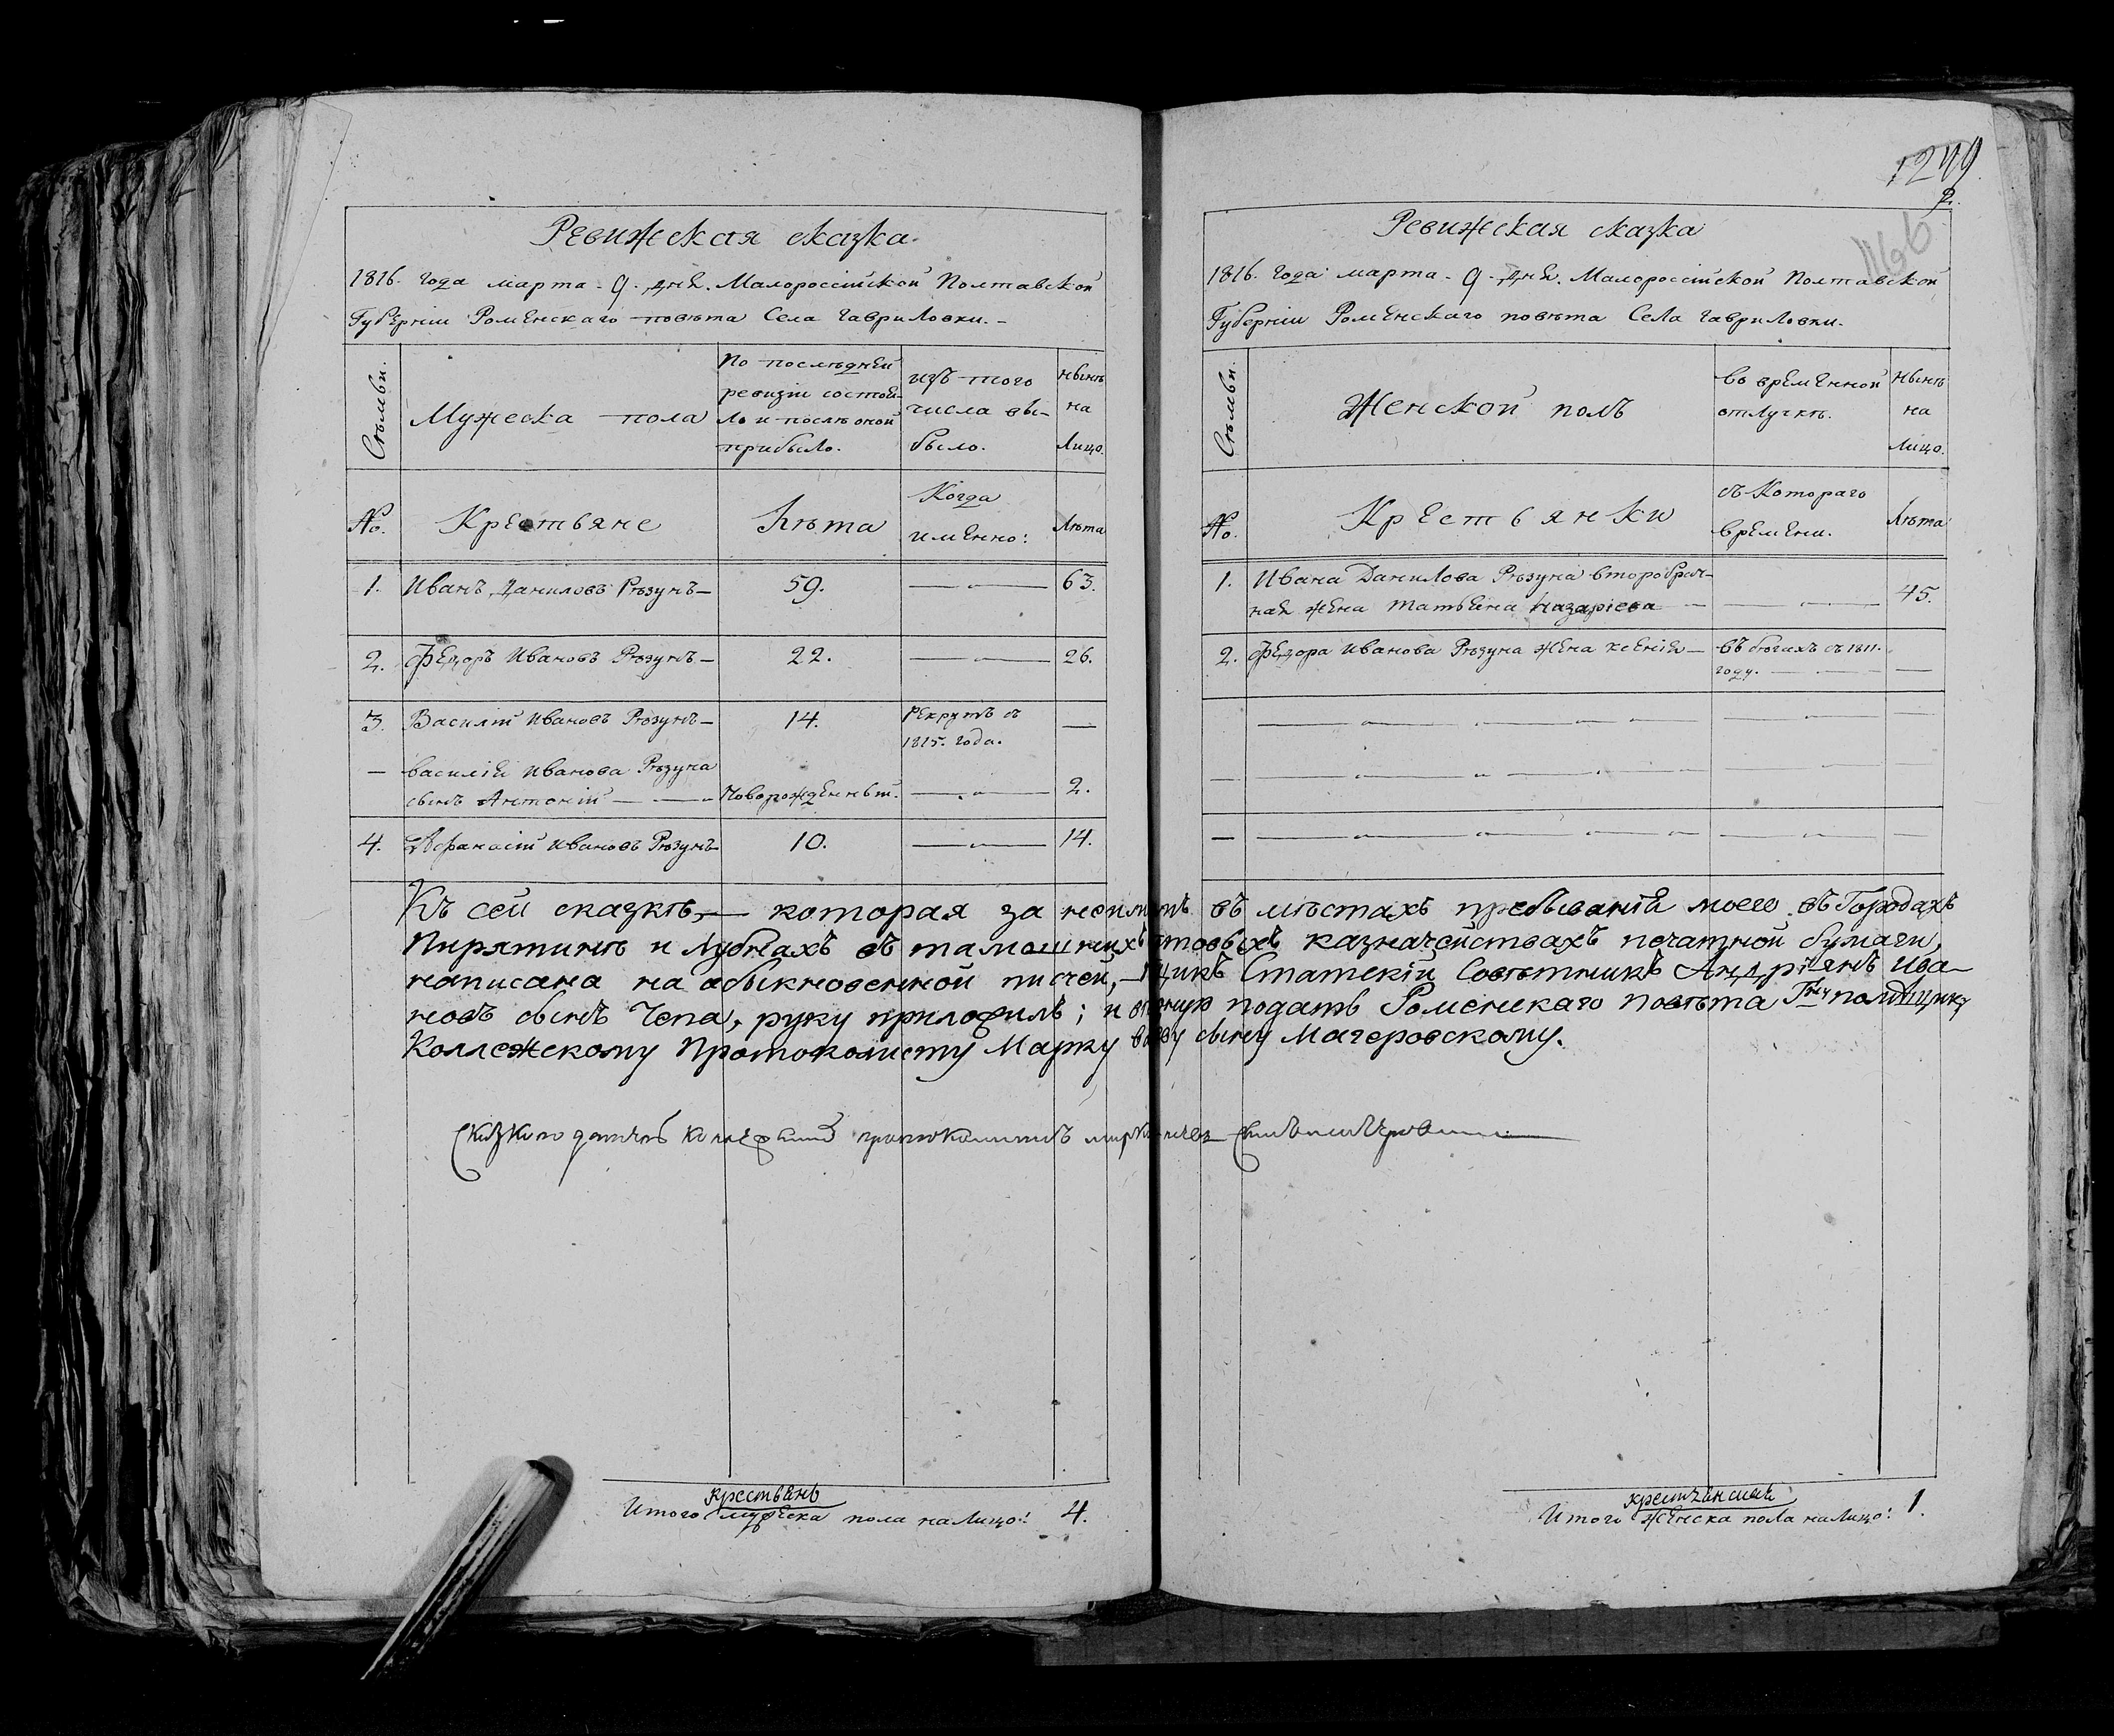 Ревижская сказка.
1816. года марта. 9. дня. Малороссійской Полтавской
Губерніи Роменскаго повѣта Села Гавриловки.
Семьи.
Мужеска пола
По послѣдней
ревизіи состоя-
ло и послѣ оной
прибыло.
изъ того
числа вы-
было.
нынѣ
на
лицо.
№.
Крестьяне
Лѣта
Когда
именно:
Лѣта
1. Иванъ Даниловъ Рѣзунъ 59. 63.
2. Федоръ Ивановъ Рѣзунъ 22. 26.
3. Василій Ивановъ Рѣзунъ 14. Рекрутъ съ
1815. года.
василія Иванова Рѣзуна
сынъ Антоній Новорожденный. 2.
4. Афанасій Ивановъ Рѣзунъ 10. 14.
1249
2.
Ревижская сказка
1816. года марта. 9. дня. Малороссійской Полтавской
Губерніи Роменскаго повѣта Села Гавриловки.
Семьи.
Женской полъ
во временной
отлучкѣ.
нынѣ
на
лицо.
№.
Крестьянки
съ Котораго
времени.
Лѣта
1. Ивана Данилова Рѣзуна второбрач-
ная жена Татьяна Назаріева 45.
2. Федора Иванова Рѣзуна жена ксенія въ бѣгахъ съ 1811.
году.
Къ сей сказкѣ, которая за неим въ мѣстахъ пребыванія моего въ Городахъ
Пирятинѣ и Лубнахъ въ тамошнихъ казначействахъ печатной бумаги,
написана на обыкновенной писчей, Статскій Совѣтникъ Андріянъ Ива-
новъ сынъ Чепа, руку приложилъ; и подать Роменскаго Повѣта
Коллежскому Протоколисту Марку сыну Магеровскому.
Сказкоподатель протоколистъ
крестьянъ
Итого мужеска пола налицо: 4.
Итого женска пола налицо: 1.